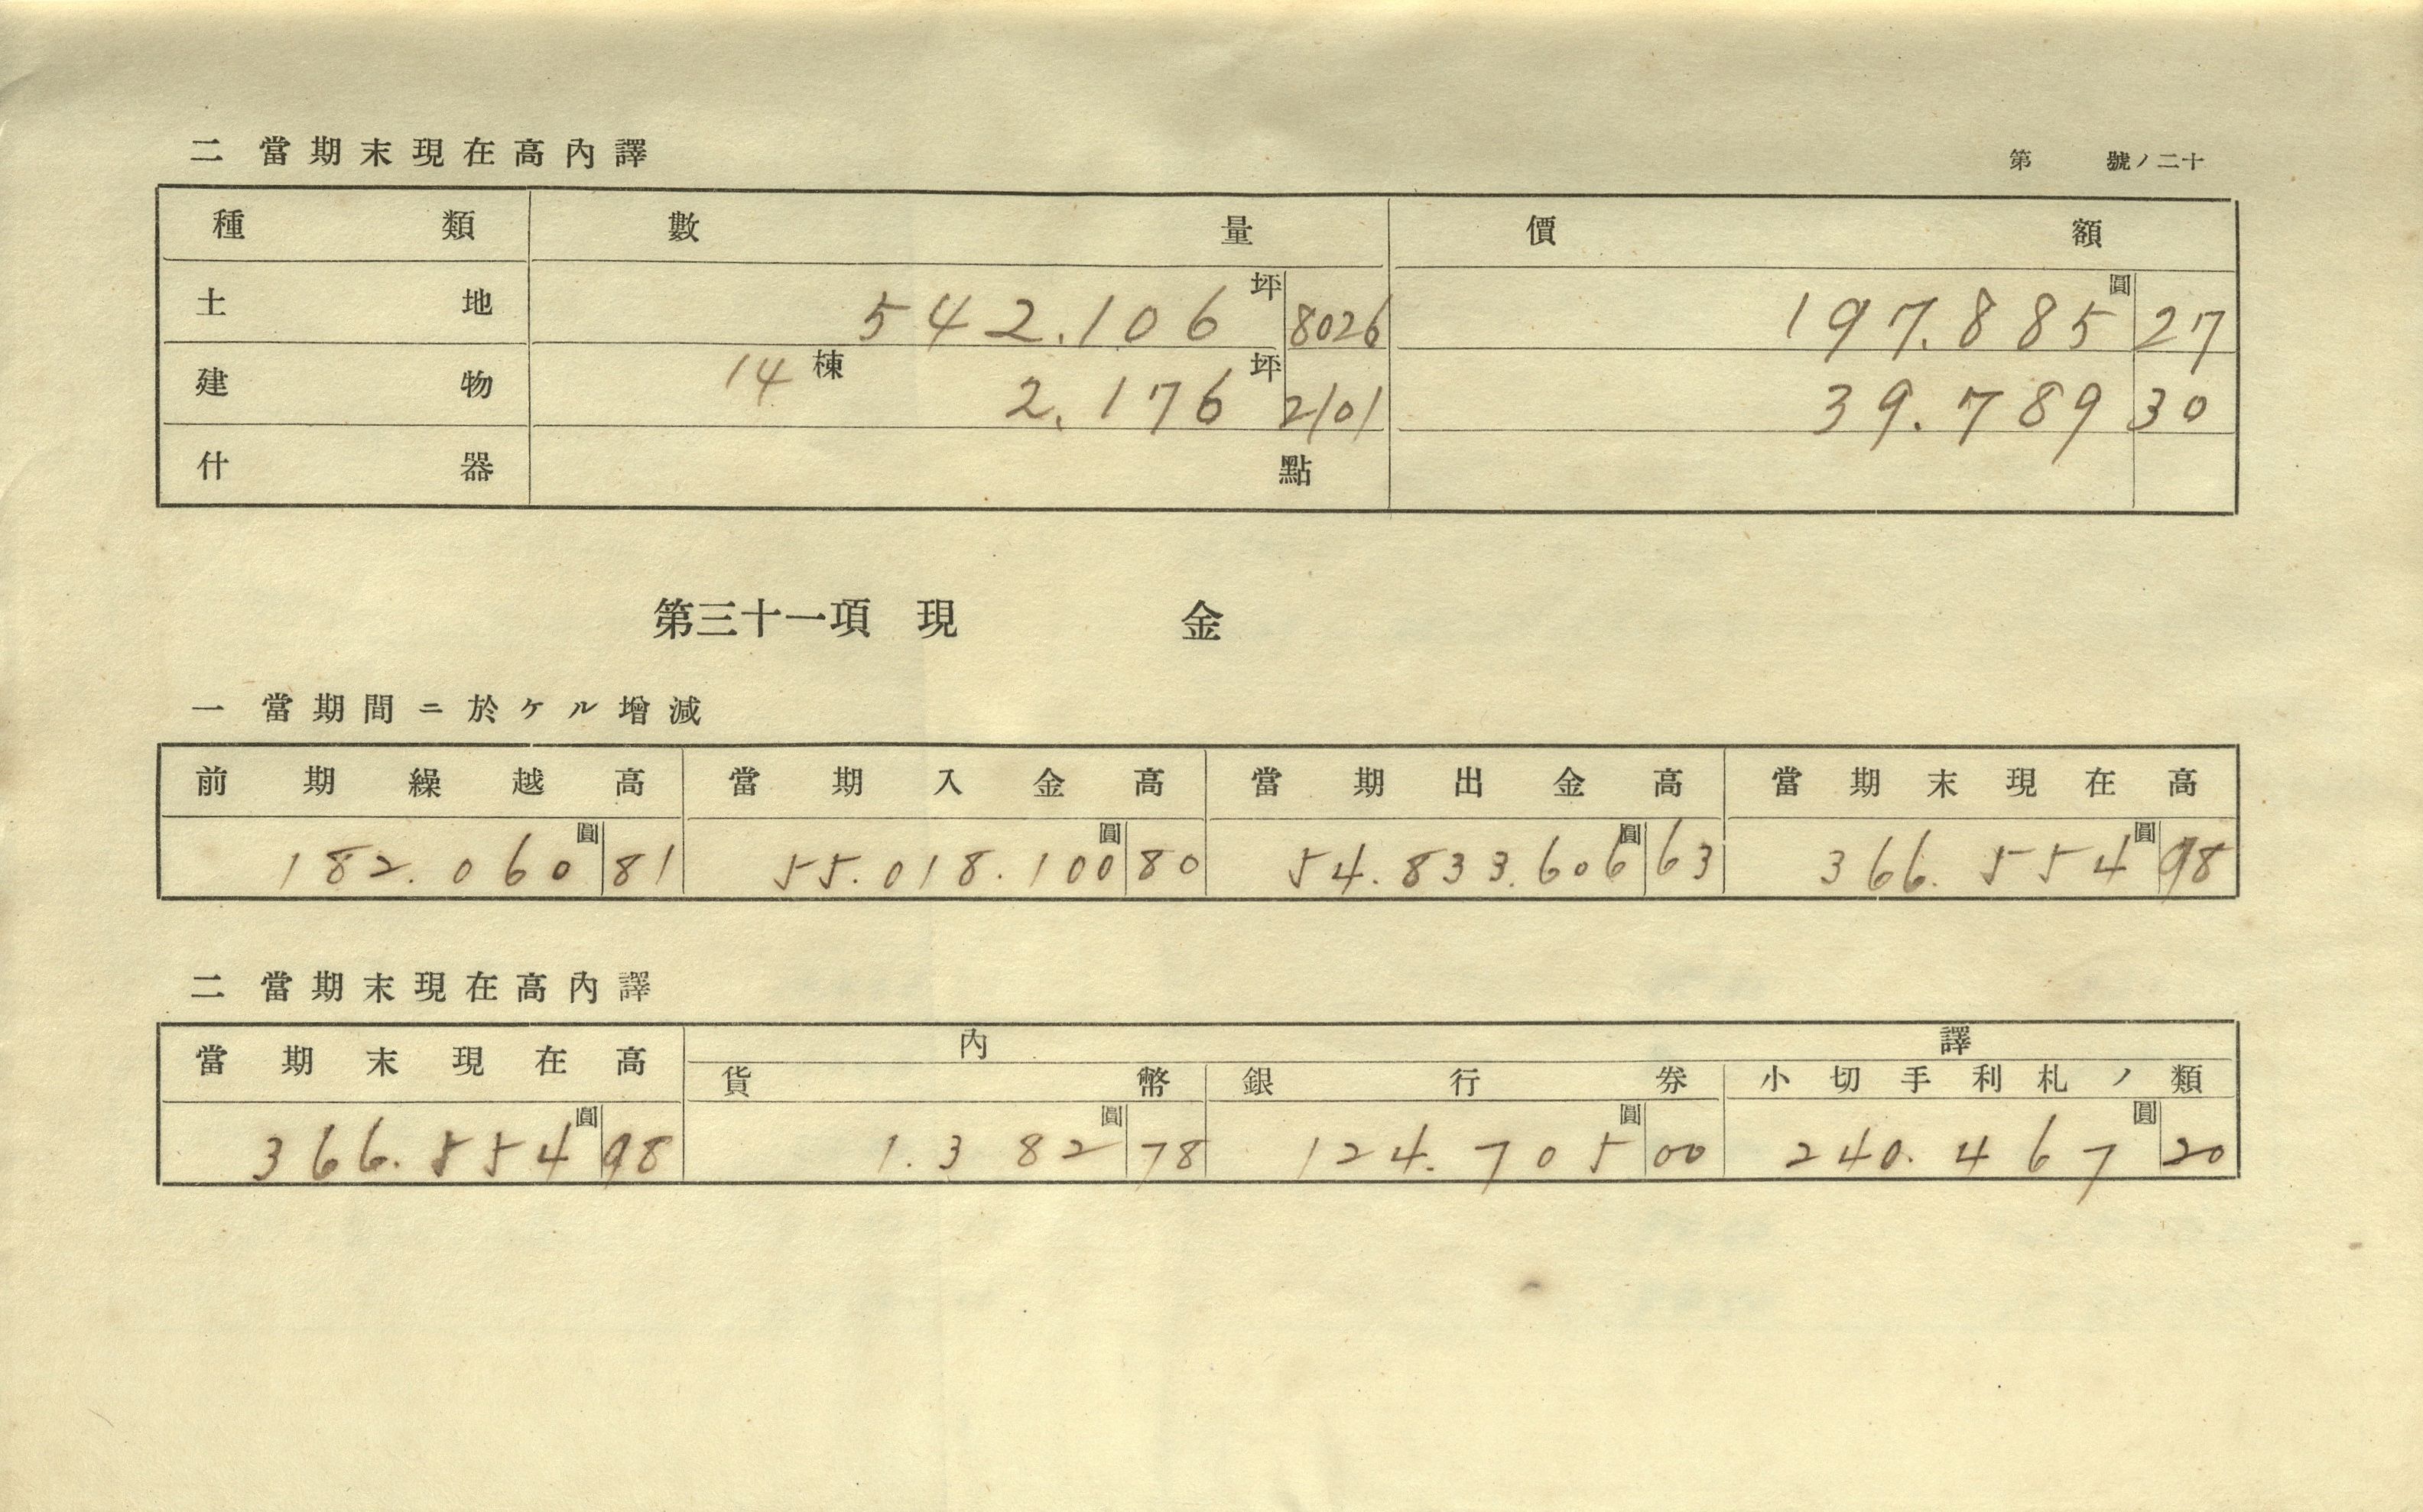 二 當期末現在高內譯
第 號ノ二十
種類 數量 價額
土地 542.106坪8026 197.885圓27
建物 14棟 2.176坪2101 39.789 30
什器 點
第三十一項 現金
一 當期間ニ於ケル增減
前期繰越高 當期入金高 當期出金高 當期末現在高
182.060圓81 55.018.100圓80 54.833.606圓63 366.554圓98
二 當期末現在高內譯
當期末現在高 內譯
貨幣 銀行券 小切手利札ノ類
366.554圓98 1.382圓78 124.705圓00 240.467圓20